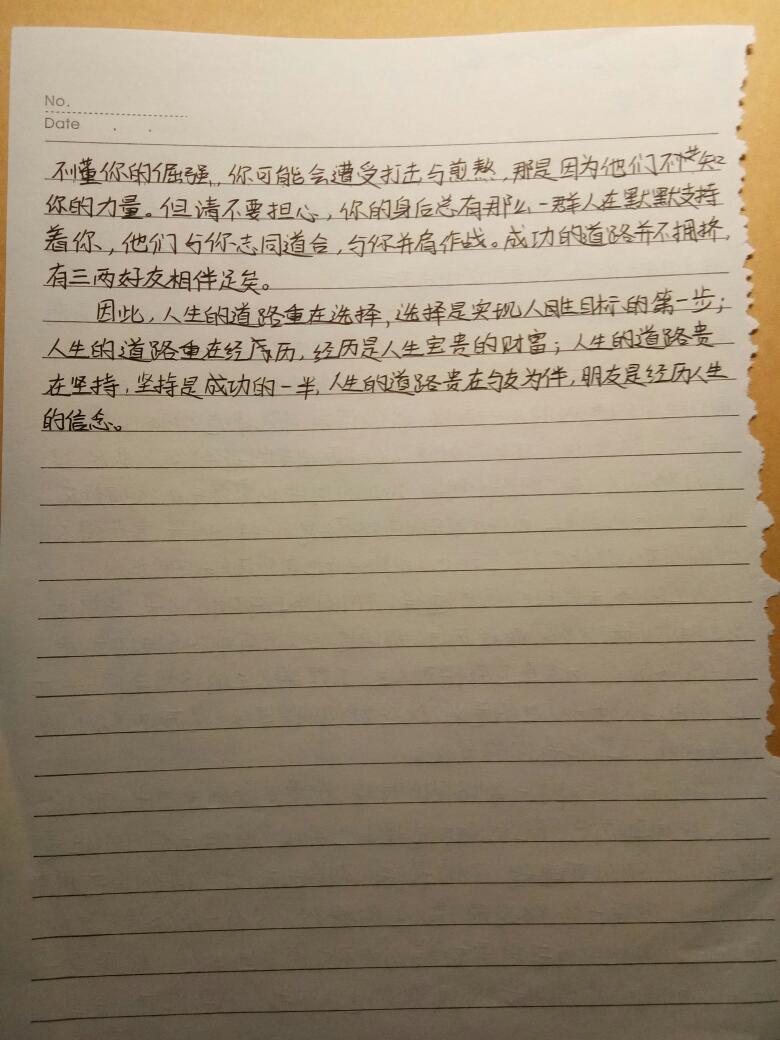 No.
Date
不懂你的倔强,你可能会遭受打击与煎熬,那是因为他们不知
你的力量。但请不要担心,你的身后总有那么一群人在默默支持
着你,他们与你志同道合,与你并肩作战。成功的道路并不拥挤,
有三两好友相伴足矣。
因此,人生的道路重在选择,选择是实现人生目标的第一步;
人生的道路重在经历,经历是人生宝贵的财富;人生的道路贵
在坚持,坚持是成功的一半,人生的道路贵在与友为伴,朋友是经历人生
的信念。